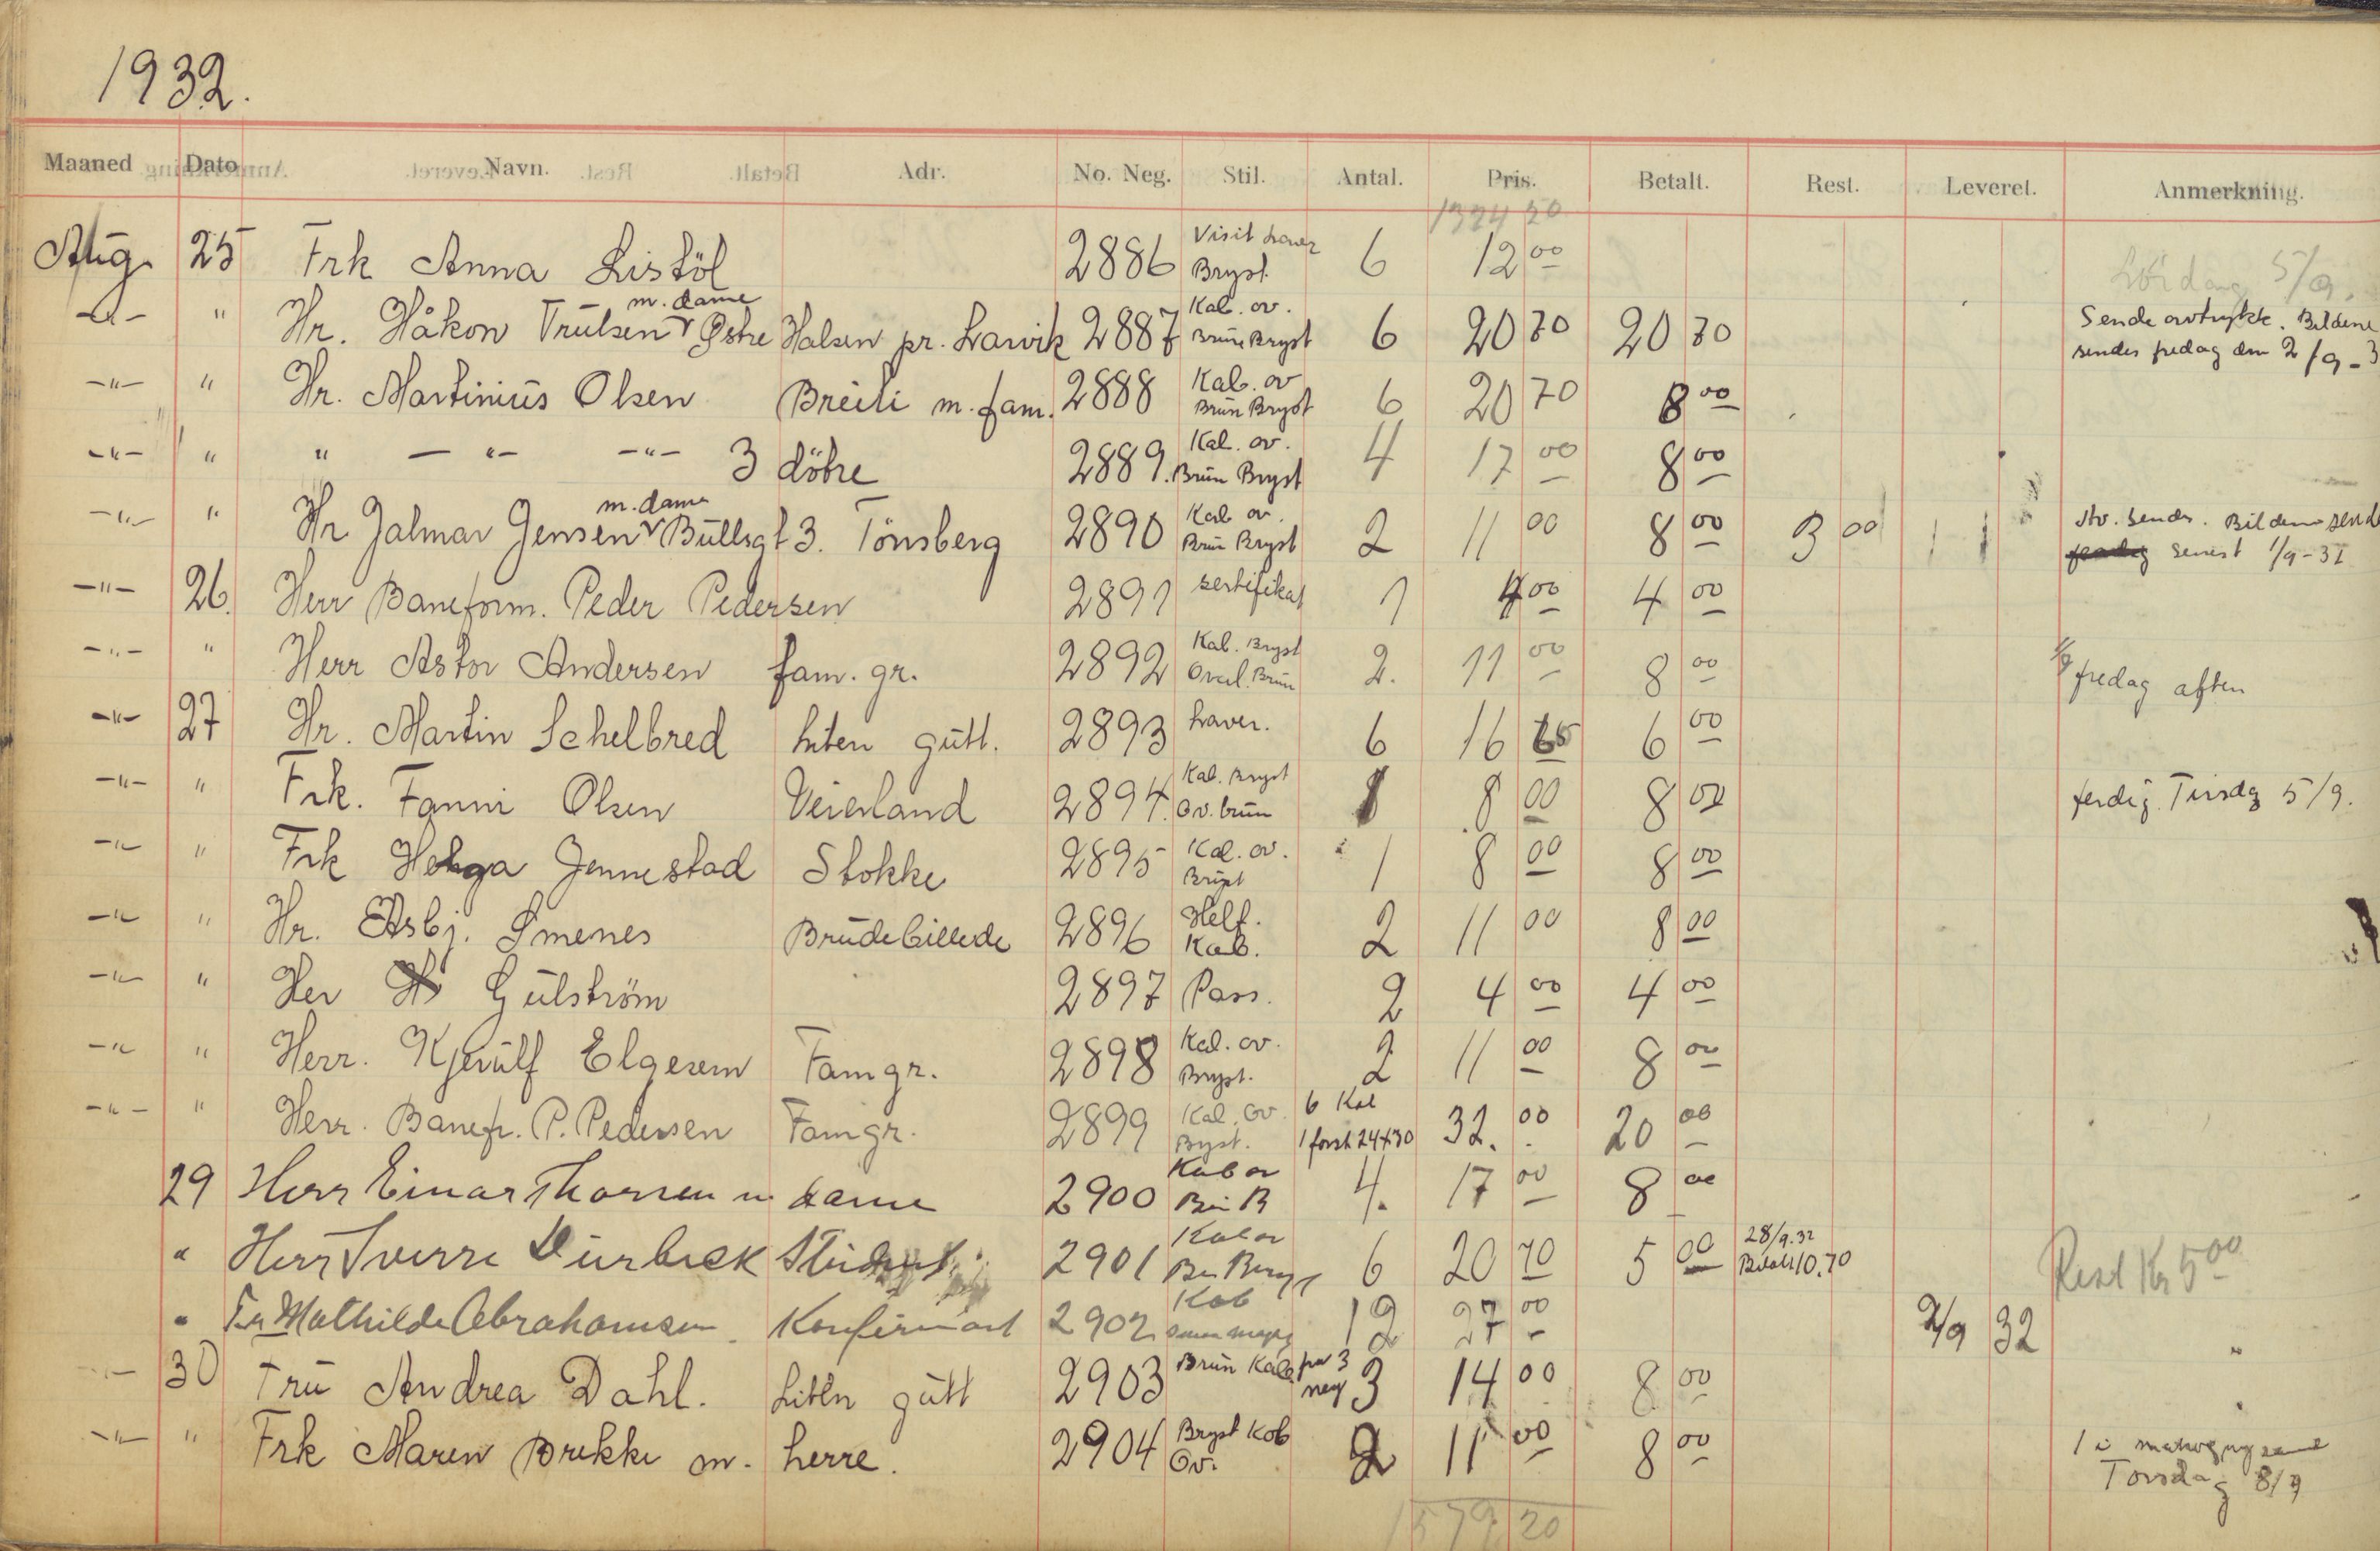 1932.
Maaned Dato Navn. Adr. No. Neg. Stil. Antal. Pris. Betalt. Rest. Leveret. Anmerkning.
Aug. 25 Frk Anna Listöl 2886 Visit Bryst. 6 12 00 Lördag 5/9.
-"- " Hr. Håkon Trulsen m. dame Østre Halsen pr. Larvik 2887 Kab. ov. Brun Bryst 6 20 70 20 70 Sende avtrykk. Bildene
sendes fredag den 2/9-3
-"- " Hr. Martinius Olsen Breili m. fam. 2888 Kab. ov Brun Bryst 6 20 70 8 00
-"- " " -"- -"- 3 dötre 2889. Kab. ov. Brun Bryst 4 17 00 8 00
-"- " Hr Jalmar Jensen m. dame Bullsgt 3. Tönsberg 2890 Kab ov. Brun Bryst 2 11 00 8 00 3 00 Av. sendes. Bildene send
senest 1/9-32
-"- 26. Herr Baneform. Peder Pedersen 2891 sertifikat 1 4 00 4 00
-"- " Herr Astor Andersen fam. gr. 2892 Kab. Bryst Oval. Brun 2. 11 00 8 00 fredag aften
-"- 27 Hr. Martin Schelbred liten gutt. 2893 6 16 65 6 00
-"- " Frk. Fanni Olsen Veierland 2894. Kab. Bryst Ov. brun 1 8 00 8 00 ferdig Tirsdag 5/9.
-"- " Frk Helga Jennestad Stokke 2895 Kab. ov. Bryst 1 8 00 8 00
-"- " Hr. Asbj. Smenes Brudebillede 2896 Helf. Kab. 2 11 00 8 00
-"- " Her Gulström 2897 Pass. 2 4 00 4 00
-"- " Herr. Kjerulf Elgesem Famgr. 2898 Kab. ov. Bryst. 2 11 00 8 00
-"- " Herr. Banefr. P. Pedersen Famgr. 2899 Kab. Ov. Bryst. 6 Kab 1 forst 24x30 32. 00 20 00
29 Herr Einar Thorsen m dame 2900 Kab ov 4. 17 00 8 00
" Herr Sverre Dürbeck Student 2901 Kab ov 6 20 70 5 00 28/9.32 Betalt 10.70 Rest Kr 5 00
" Mathilde Abrahamsen Konfirmant 2902 Kab 12 27 00 2/9 32 "
- 30 Fru Andrea Dahl. Liten gutt 2903 Brun Kab. fra 3 neg 3 14 00 8 00
-"- " Frk Maren Brekke m. herre. 2904 Bryst Kab Ov. 2 11 00 8 00 1 i
Torsdag 8/9
1579 20